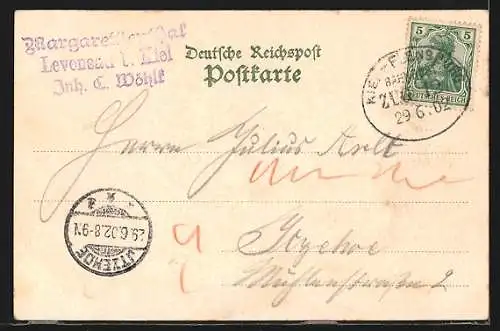 Margarethenthal
Levensau b. Kiel
Inh. C. Wöhlk
Deutsche Reichspost
Postkarte
5 5
DEUTSCHES REICH
KIEL-FLENSBURG
BAHNPOST
ZUG
29 6 02
Herrn Julius Arlt
Itzehoe
Mühlenstraße 2
29.6.02.8-9N
ITZEHOE